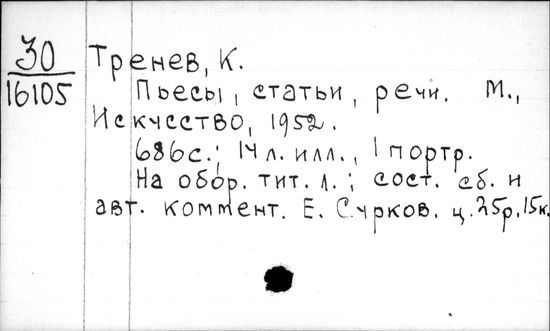 30
16105
Тренев, К.
Пьесы, статьи, речи. М.,
Искусство, 1952.
686с.; 14 л. илл., 1 портр.
На обор. тит. л.: сост. сб. и
авт. коммент. Е. Сурков. ц. 25р. 15к.